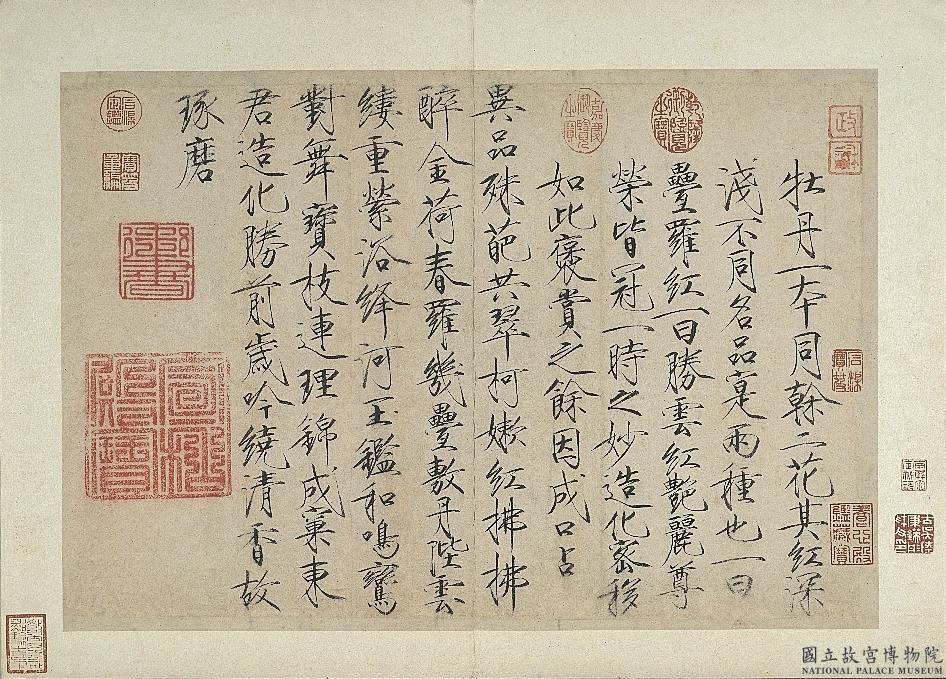 牡丹一本同榦二花其紅深
淺不同名品寔兩種也一曰
疊羅紅一曰勝雲紅艷麗尊
榮皆冠一時之妙造化密移
如此褒賞之餘因成口占
異品殊葩共翠柯嫩紅拂拂
醉金荷春羅幾疊敷丹陛雲
縷重縈浴絳河玉鑑和鳴鸞
對舞寶枝連理錦成窠東
君造化勝前歲吟繞清香故
琢磨
嘉慶御覽之寶
國立故宮博物院
NATIONAL PALACE MUSEUM